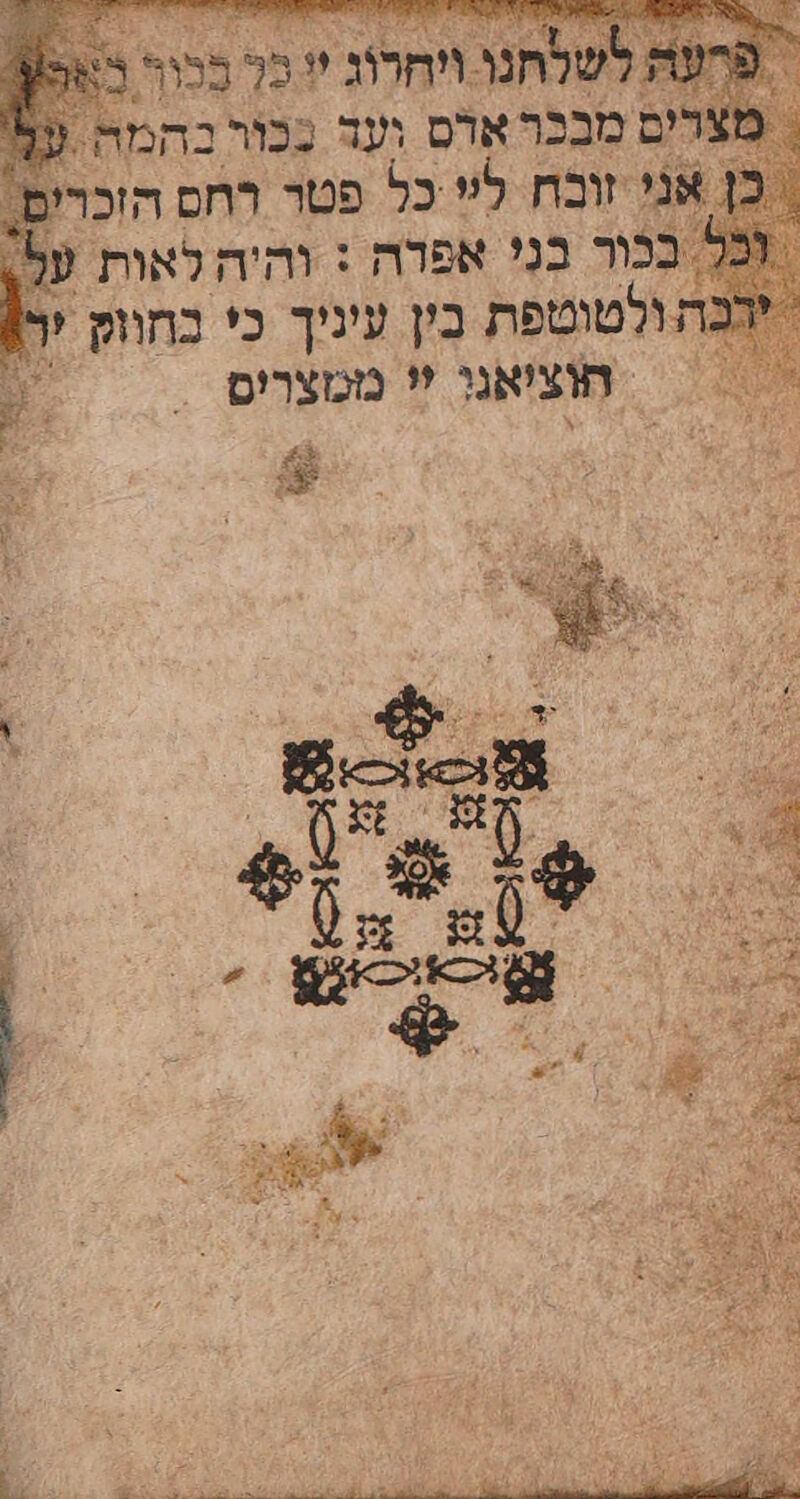 פרעה לשלחנו ויהרוג יי כל בכור בארץ
מצרים מבכר אדם ועד בכור בהמה על
כן אני זובח ליי כל פטר רחם הזכרים
וכל בכור בני אפדה : והיה לאות על
ידכה ולטוטפת בין עיניך כי בחווק יד
הוציאנו יי ממצרים